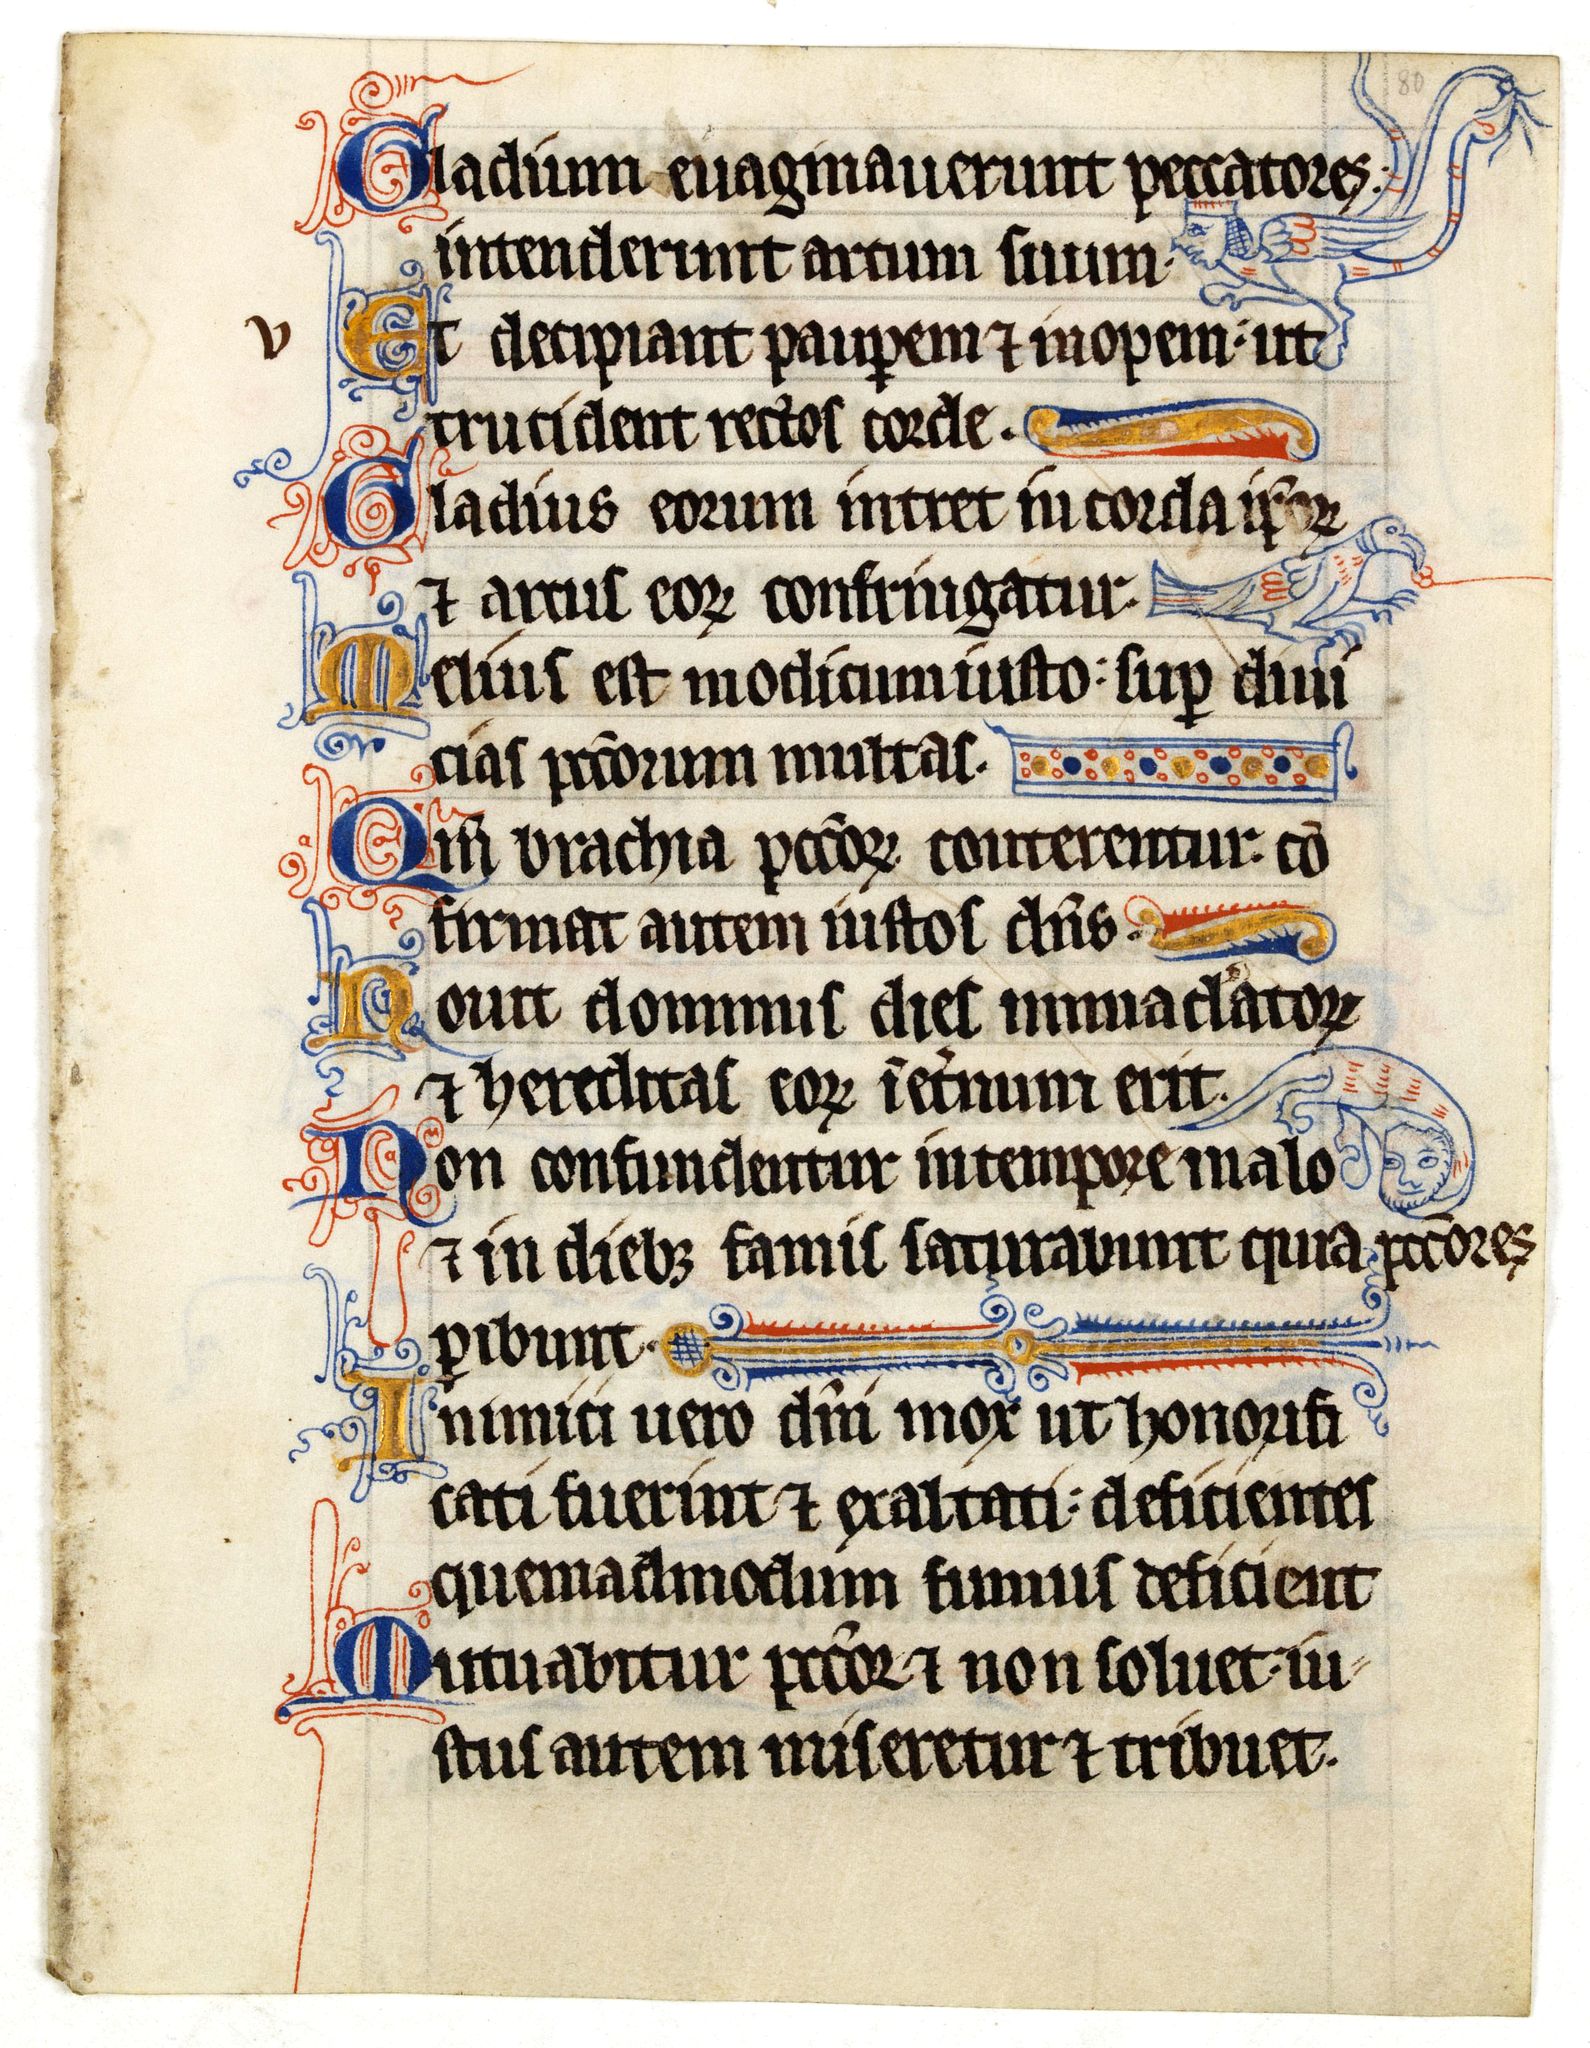 80
Gladium euaginauerunt peccatores:
intenderunt arcum suum.
v Et decipiant paup̲em ⁊ inopem: ut
trucident rectos corde.
Gladius eorum intret in corda ip̄oꝝ
⁊ arcus eoꝝ confringatur.
Melius est modicum iusto: suꝑ diui
cias pccōrum multas.
Qm̄ brachia pccōꝝ conterentur. cō
firmat autem iustos dn̄s.
Nouit dominus dies inmaclatoꝝ
⁊ hereditas eoꝝ ī et̾num erit.
Non confundentur in tempore malo
⁊ in diebꝫ famis saturabunt᷑ quia pccōres
ꝑibunt.
Inimici uero dn̄i mox ut honorifi
cati fuerint ⁊ exaltati: deficientes
quemadmodum fumus deficient
Mutuabitur pccōr ⁊ non soluet: iu-
stus autem miseretur ⁊ tribuet.